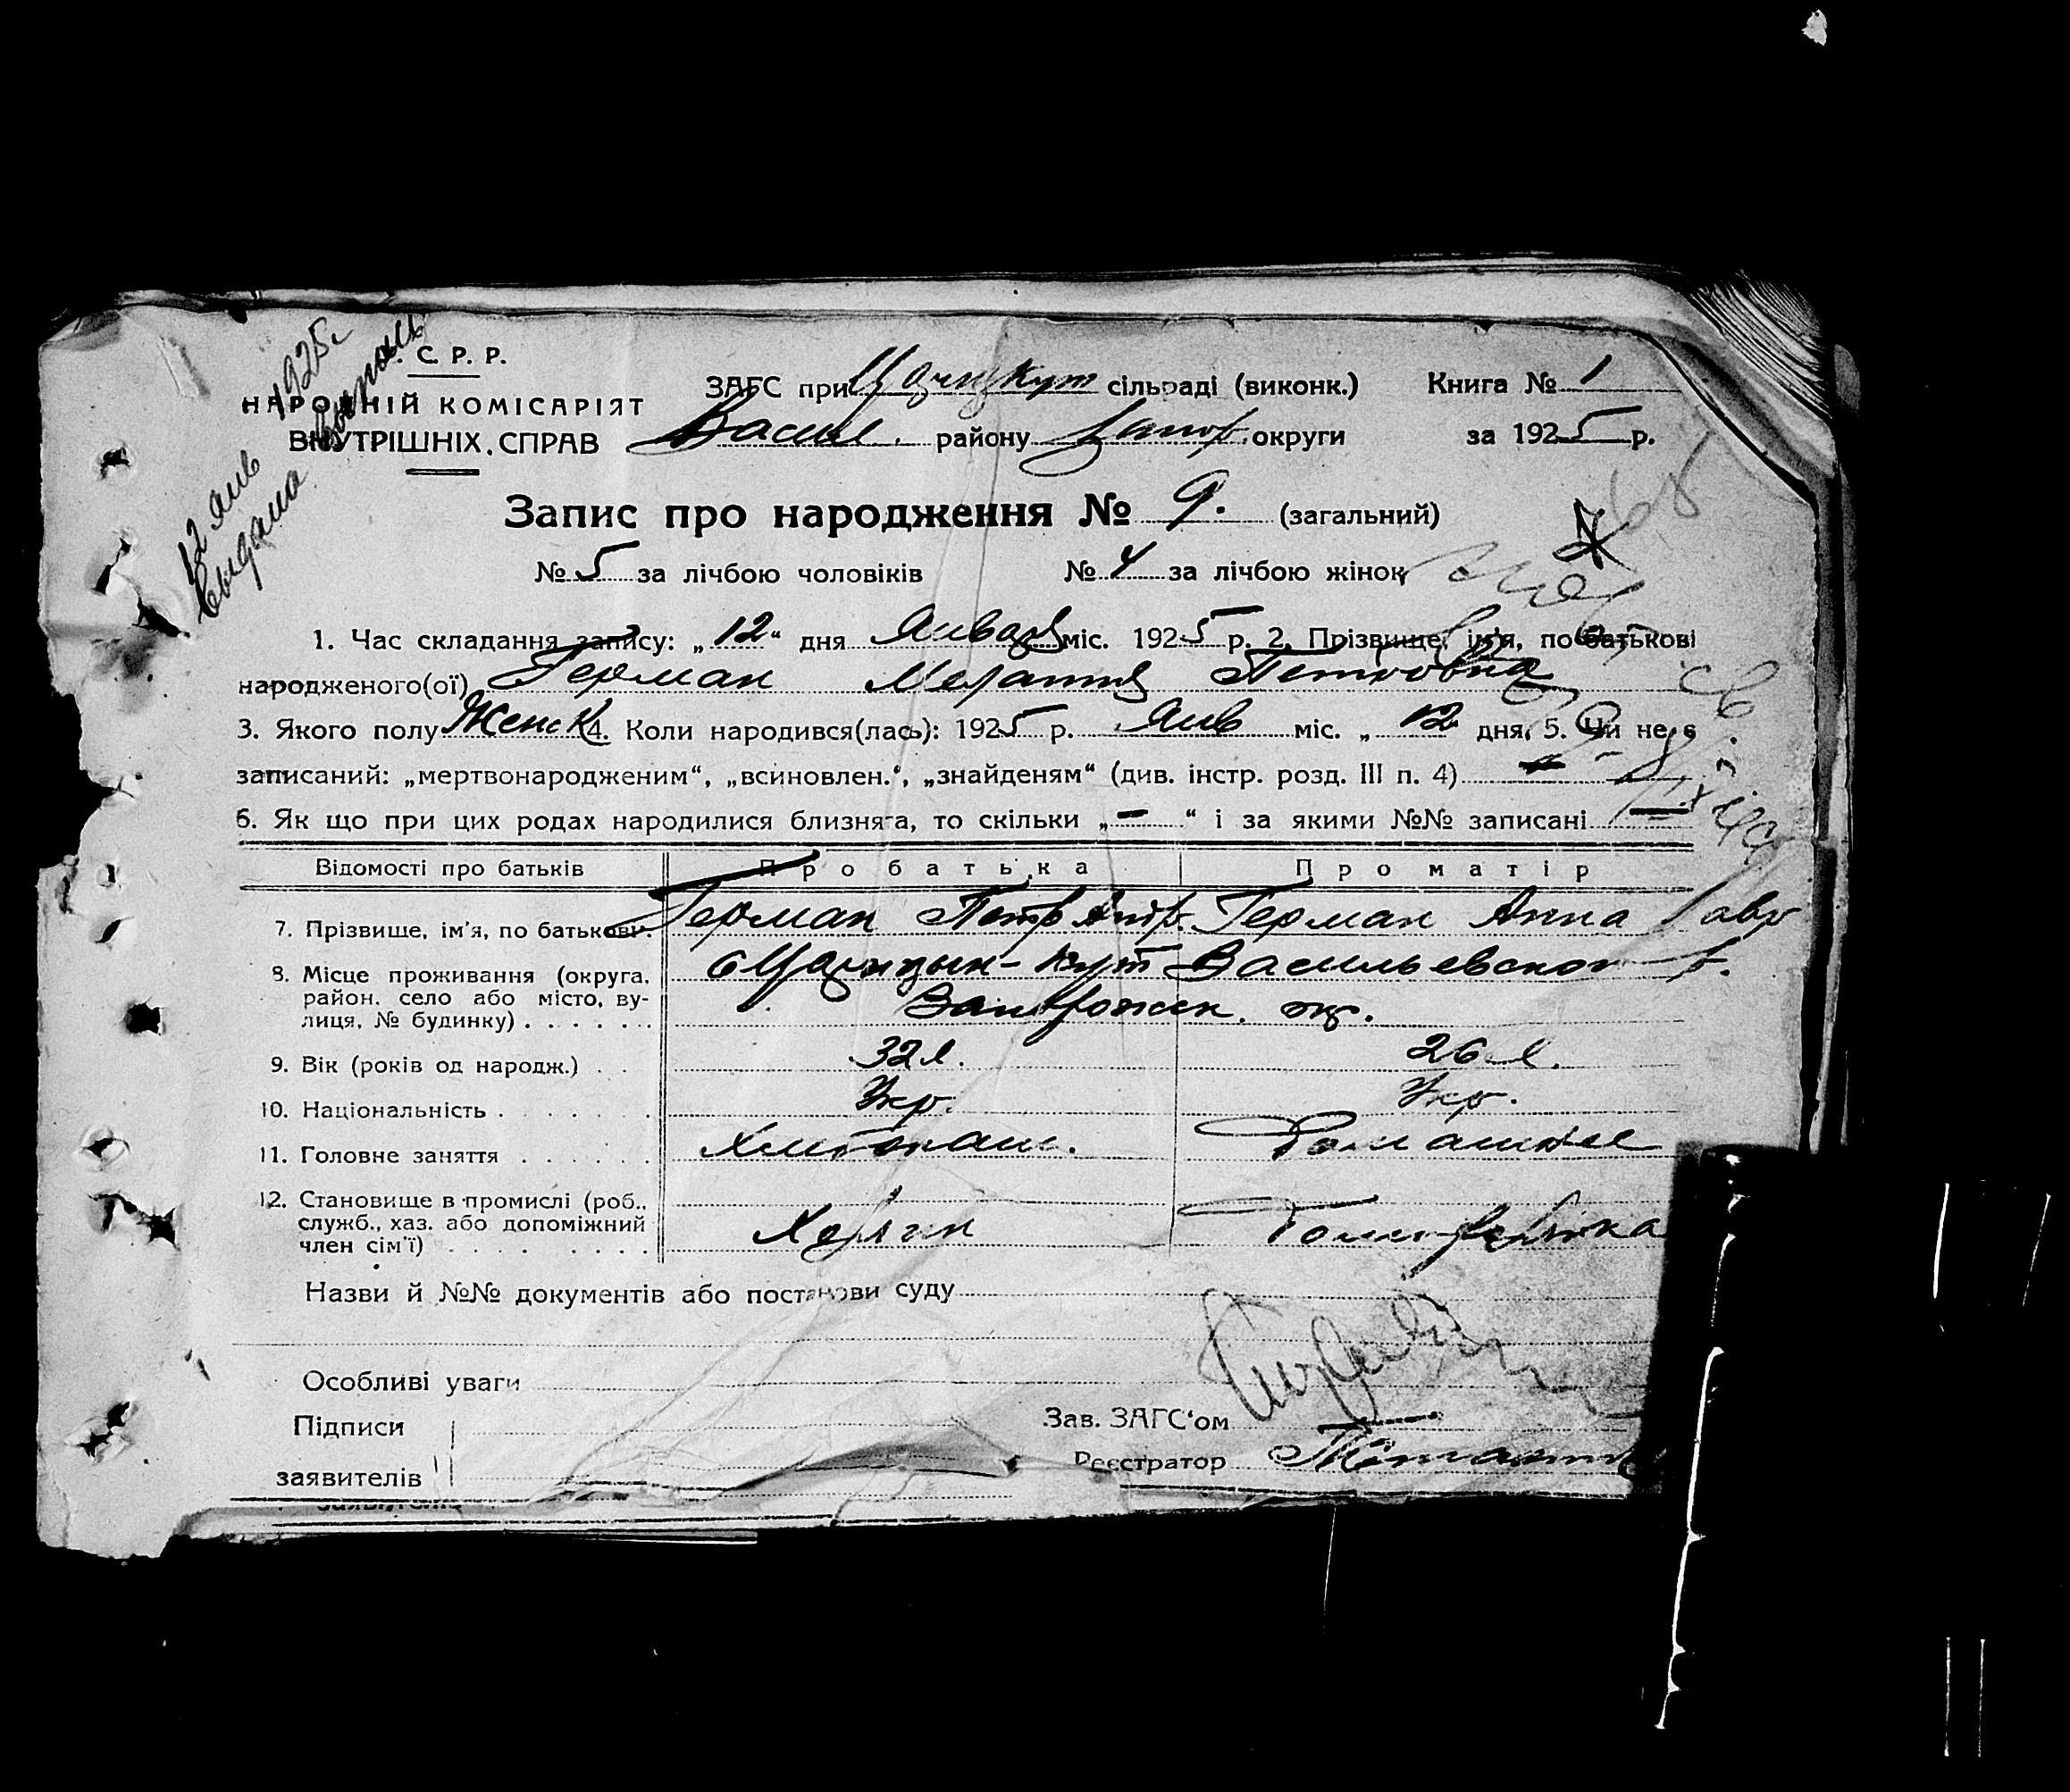 С. Р. Р.
НАРОДНІЙ КОМІСАРІЯТ
ВНУТРІШНІХ СПРАВ
12 янв 1925г
выдана выпись
ЗАГС при Царицкут сільраді (виконк.) Книга № 1
Васил. району Запор. округи за 1925 р.
Запис про народження № 9. (загальний)
№ 5 за лічбою чоловіків № 4 за лічбою жінок
1. Час складання запису: „12“ дня Января міс. 1925 р. 2. Прізвище, ім'я, по батькові
народженого(ої) Герман Мелания Петровна
3. Якого полу Женск 4. Коли народився(лась): 1925 р. Янв міс. „ 12 дня, 5. Чи не є
записаний: „мертвонародженим“, „всиновлен.“, „знайденям“ (див. інстр. розд. III п. 4)
6. Як що при цих родах народилися близнята, то скільки „—“ і за якими №№ записані —
Відомості про батьків Про батька Про матір
7. Прізвище, ім'я, по батькові. Герман Петр Герман Анна
8. Місце проживання (округа, район, село або місто, вулиця, № будинку) с Царицын-Кут Васильевского р.
Запорожск. окр.
9. Вік (років од народж.) 32 л. 26 л.
10. Національність Укр. Укр.
11. Головне заняття Хлебопаш. Домашнее
12. Становище в промислі (роб., служб., хаз. або допоміжний член сім'ї) Хозяин Домохозяйка
Назви й №№ документів або постанови суду
Особливі уваги
Підписи
заявителів
Зав. ЗАГС'ом
Реєстратор